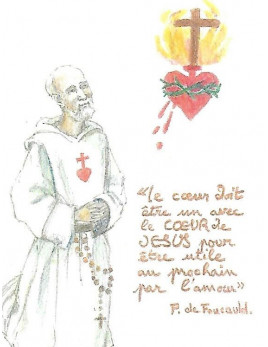 "Le cœur doit
être un avec
le CŒUR de
JESUS pour
être utile
au prochain
par l'amour"
P. de Foucauld.